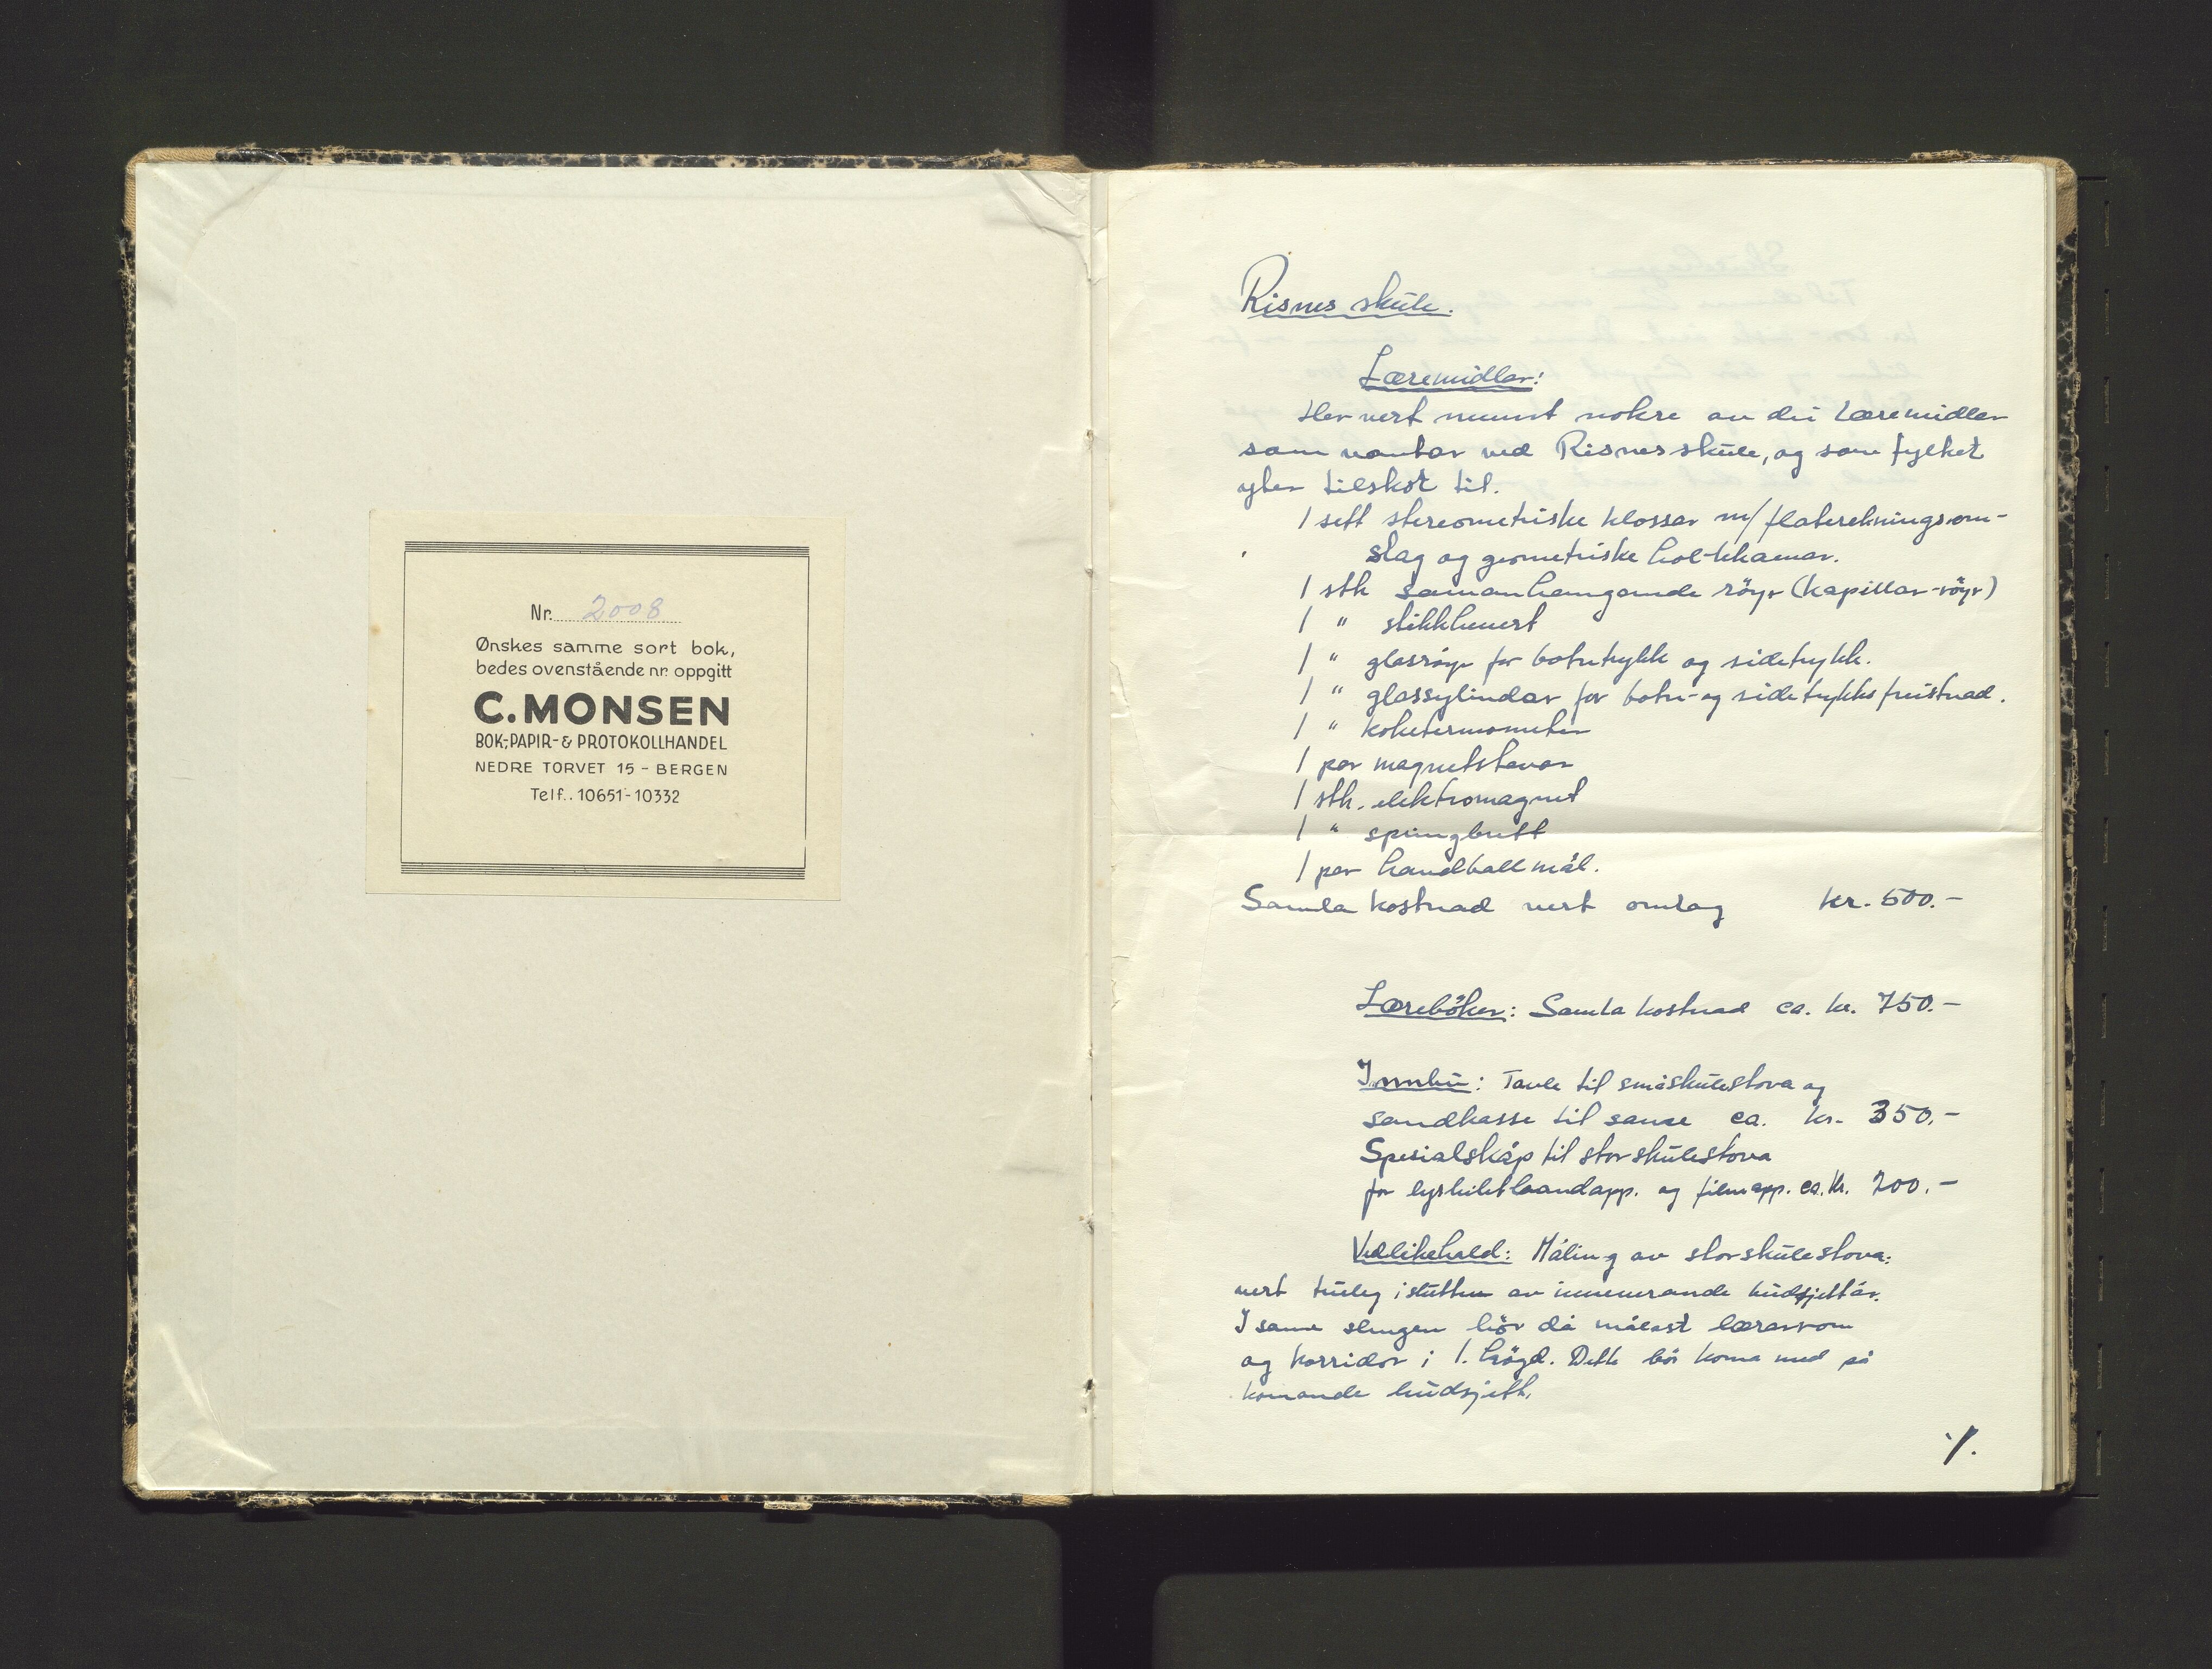 Nr. 2008
Ønskes samme sort bok,
bedes ovenstående nr. oppgitt
C. MONSEN
BOK-, PAPIR- & PROTOKOLLHANDEL
NEDRE TORVET 15 - BERGEN
Telf.. 10651-10332
Risnes skule.
Læremidlar:
Her vert nemnt nokre av dei læremidlar
som vantar ved Risnes skule, og som fylket
yter tilskot til.
1 sett stereometriske klossar m/ flaterekningsom-
slag og geometriske hol-
1 stk samanhengande röyr (kapillar-röyr)
1 " stikkhevert
1 " glasröyr for botntrykk og sidetrykk.
1 " glassylindar for botn- og sidetrykksfreistnad.
1 " koketermometer
1 par magnetstavar
1 stk. elektromagnet
1 " springbrett
1 par handballmål.
Samla kostnad vert omlag kr. 500.-
Lærebøker: Samla kostnad ca. kr. 750.-
Innbu: Tavle til småskulestova og
sandkasse til same ca. kr. 350.-
Spesialskåp til storskulestova
for lysbiletbandapp. og filmapp. ca. kr. 200.-
Vedlikehald: Måling av storskulestova:
vert truleg i slutten av inneverande budsjettår.
I same slengen bör då målast lærarrom
og korridor i 1. högd. Dette bör koma med på
komande budsjett.
./.